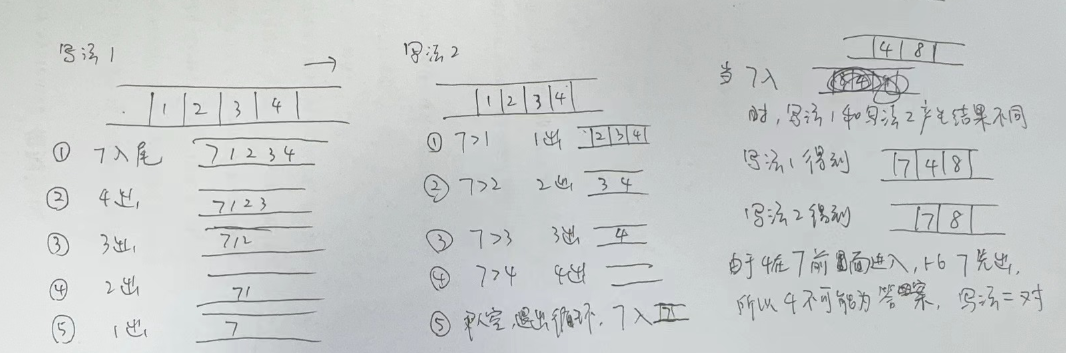 写法1
1 2 3 4
① 7入尾 7 1 2 3 4
② 4出 7 1 2 3
③ 3出 7 1 2
④ 2出 7 1
⑤ 1出 7
写法2
1 2 3 4
① 7>1 1出 2 3 4
② 7>2 2出 3 4
③ 7>3 3出 4
④ 7>4 4出
⑤ 队空,退出循环,7入 7
4 8
当7入
时,写法1和写法2产生结果不同
写法1得到 7 4 8
写法2得到 7 8
由于4在7前面进入,比7先出,
所以4不可能为答案,写法二对